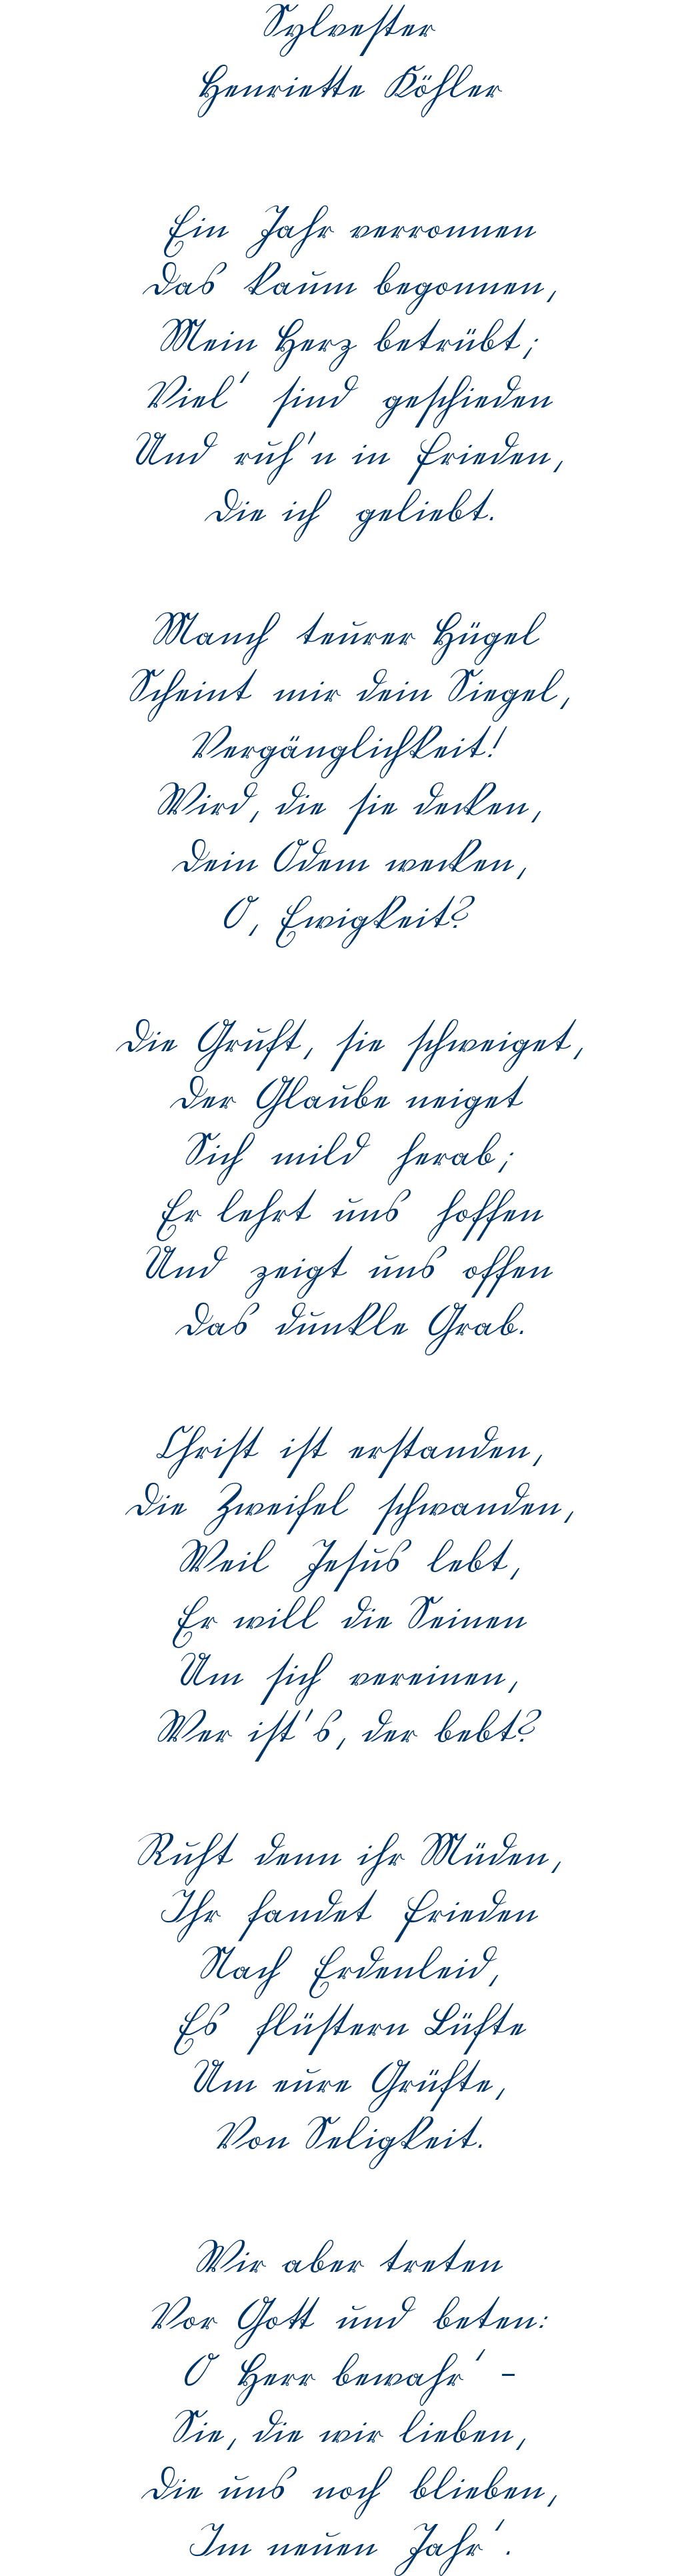 Sylvester
Henriette Köhler
Ein Jahr verronnen
Das kaum begonnen,
Mein Herz betrübt;
Viel' sind geschieden
Und ruh'n in Frieden,
Die ich geliebt.
Manch teurer Hügel
Scheint mir dein Siegel,
Vergänglichkeit!
Wird, die sie decken,
Dein Odem wecken,
O, Ewigkeit?
Die Gruft, sie schweiget,
Der Glaube neiget
Sich mild herab;
Er lehrt uns hoffen
Und zeigt uns offen
Das dunkle Grab.
Christ ist erstanden,
Die Zweifel schwanden,
Weil Jesus lebt,
Er will die Seinen
Um sich vereinen,
Wer ist's, der bebt?
Ruht denn ihr Müden,
Ihr fandet Frieden
Nach Erdenleid,
Es flüstern Lüfte
Um eure Grüfte,
Von Seligkeit.
Wir aber treten
Vor Gott und beten:
O Herr bewahr' -
Sie, die wir lieben,
Die uns noch blieben,
Im neuen Jahr'.